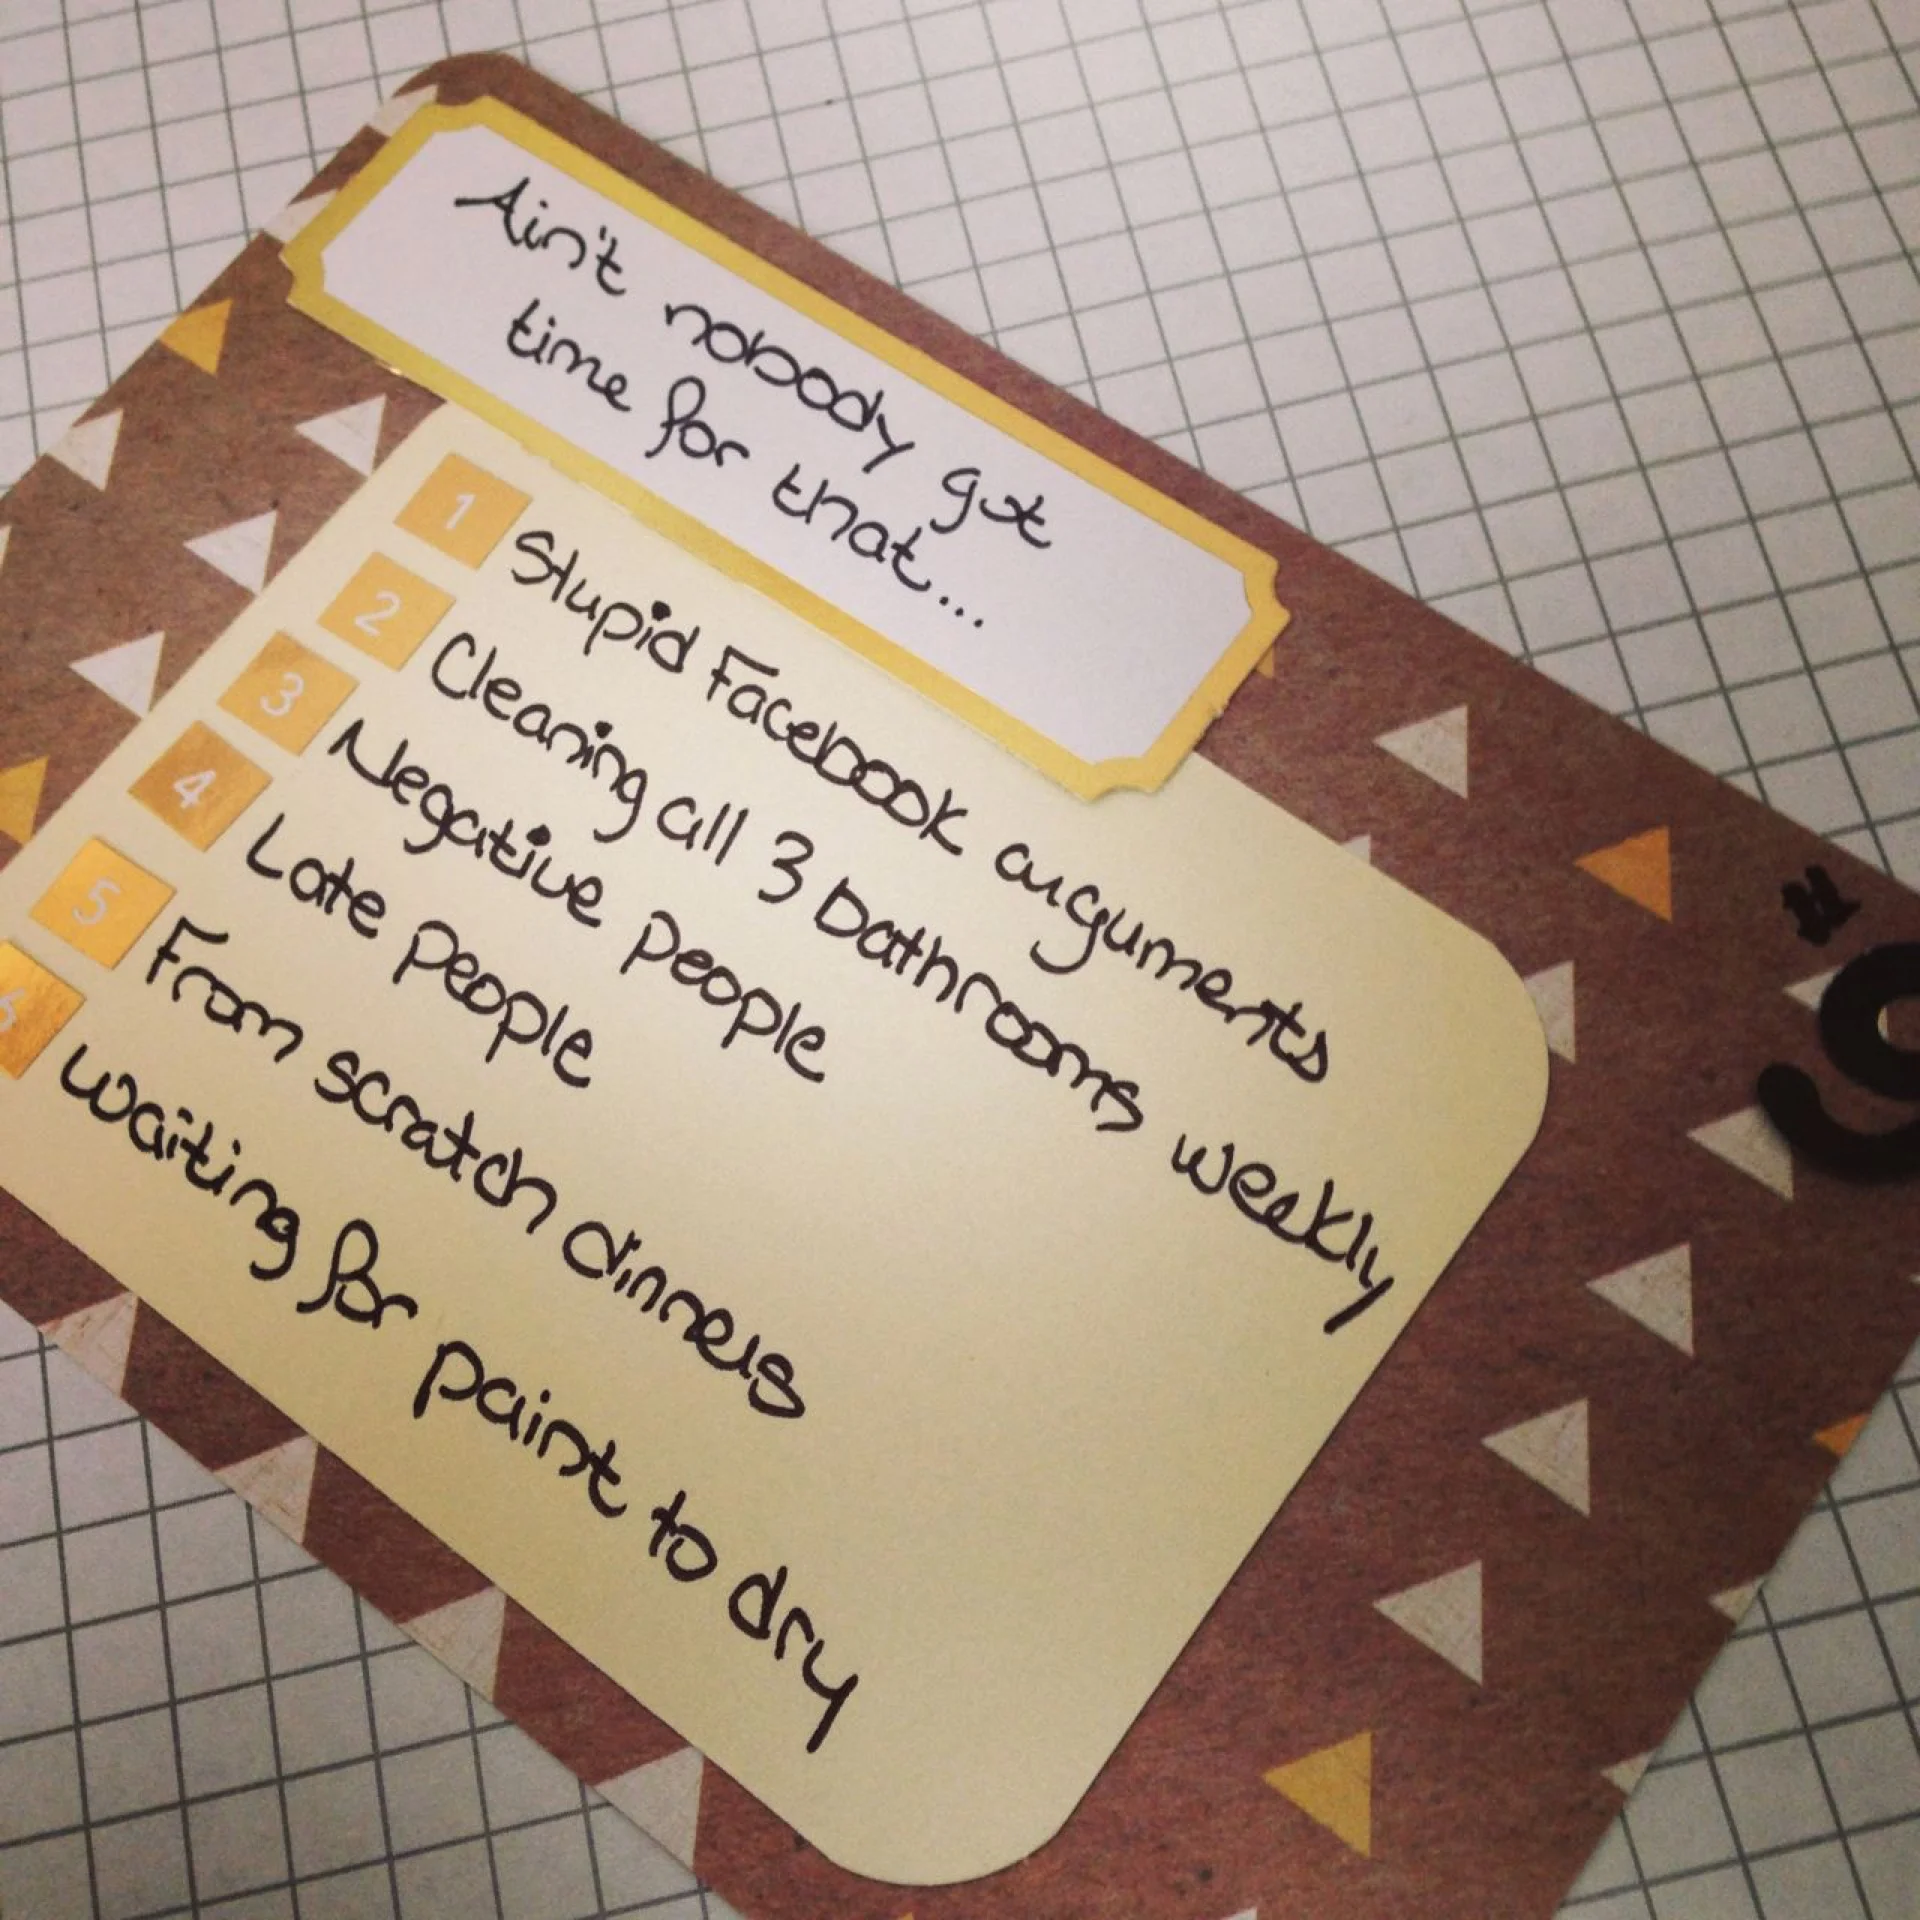 Ain't nobody got
time for that...
1 Stupid Facebook arguments
2 Cleaning all 3 bathrooms weekly
3 Negative people
4 Late people
5 From scratch dinners
6 Waiting for paint to dry
#9